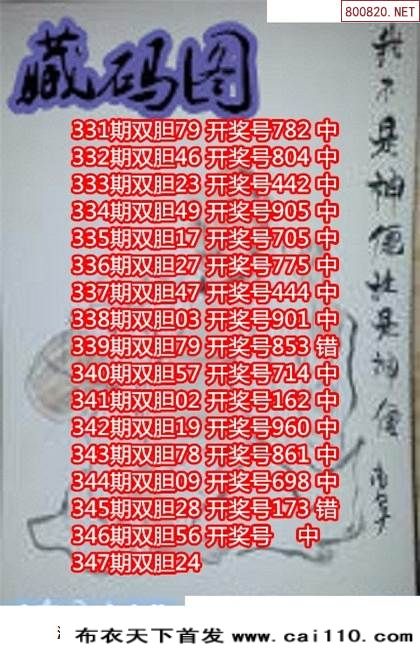 800820.NET
藏码图
331期双胆79 开奖号782 中
332期双胆46 开奖号804 中
333期双胆23 开奖号442 中
334期双胆49 开奖号905 中
335期双胆17 开奖号705 中
336期双胆27 开奖号775 中
337期双胆47 开奖号444 中
338期双胆03 开奖号901 中
339期双胆79 开奖号853 错
340期双胆57 开奖号714 中
341期双胆02 开奖号162 中
342期双胆19 开奖号960 中
343期双胆78 开奖号861 中
344期双胆09 开奖号698 中
345期双胆28 开奖号173 错
346期双胆56 开奖号 中
347期双胆24
我不是神便
是神便
布衣天下首发 www.cai110.com